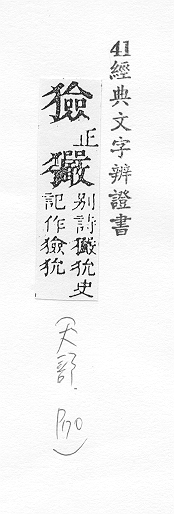 41經典文字辨證書
獫正玁別詩玁狁史
記作獫狁
(犬部. P70)